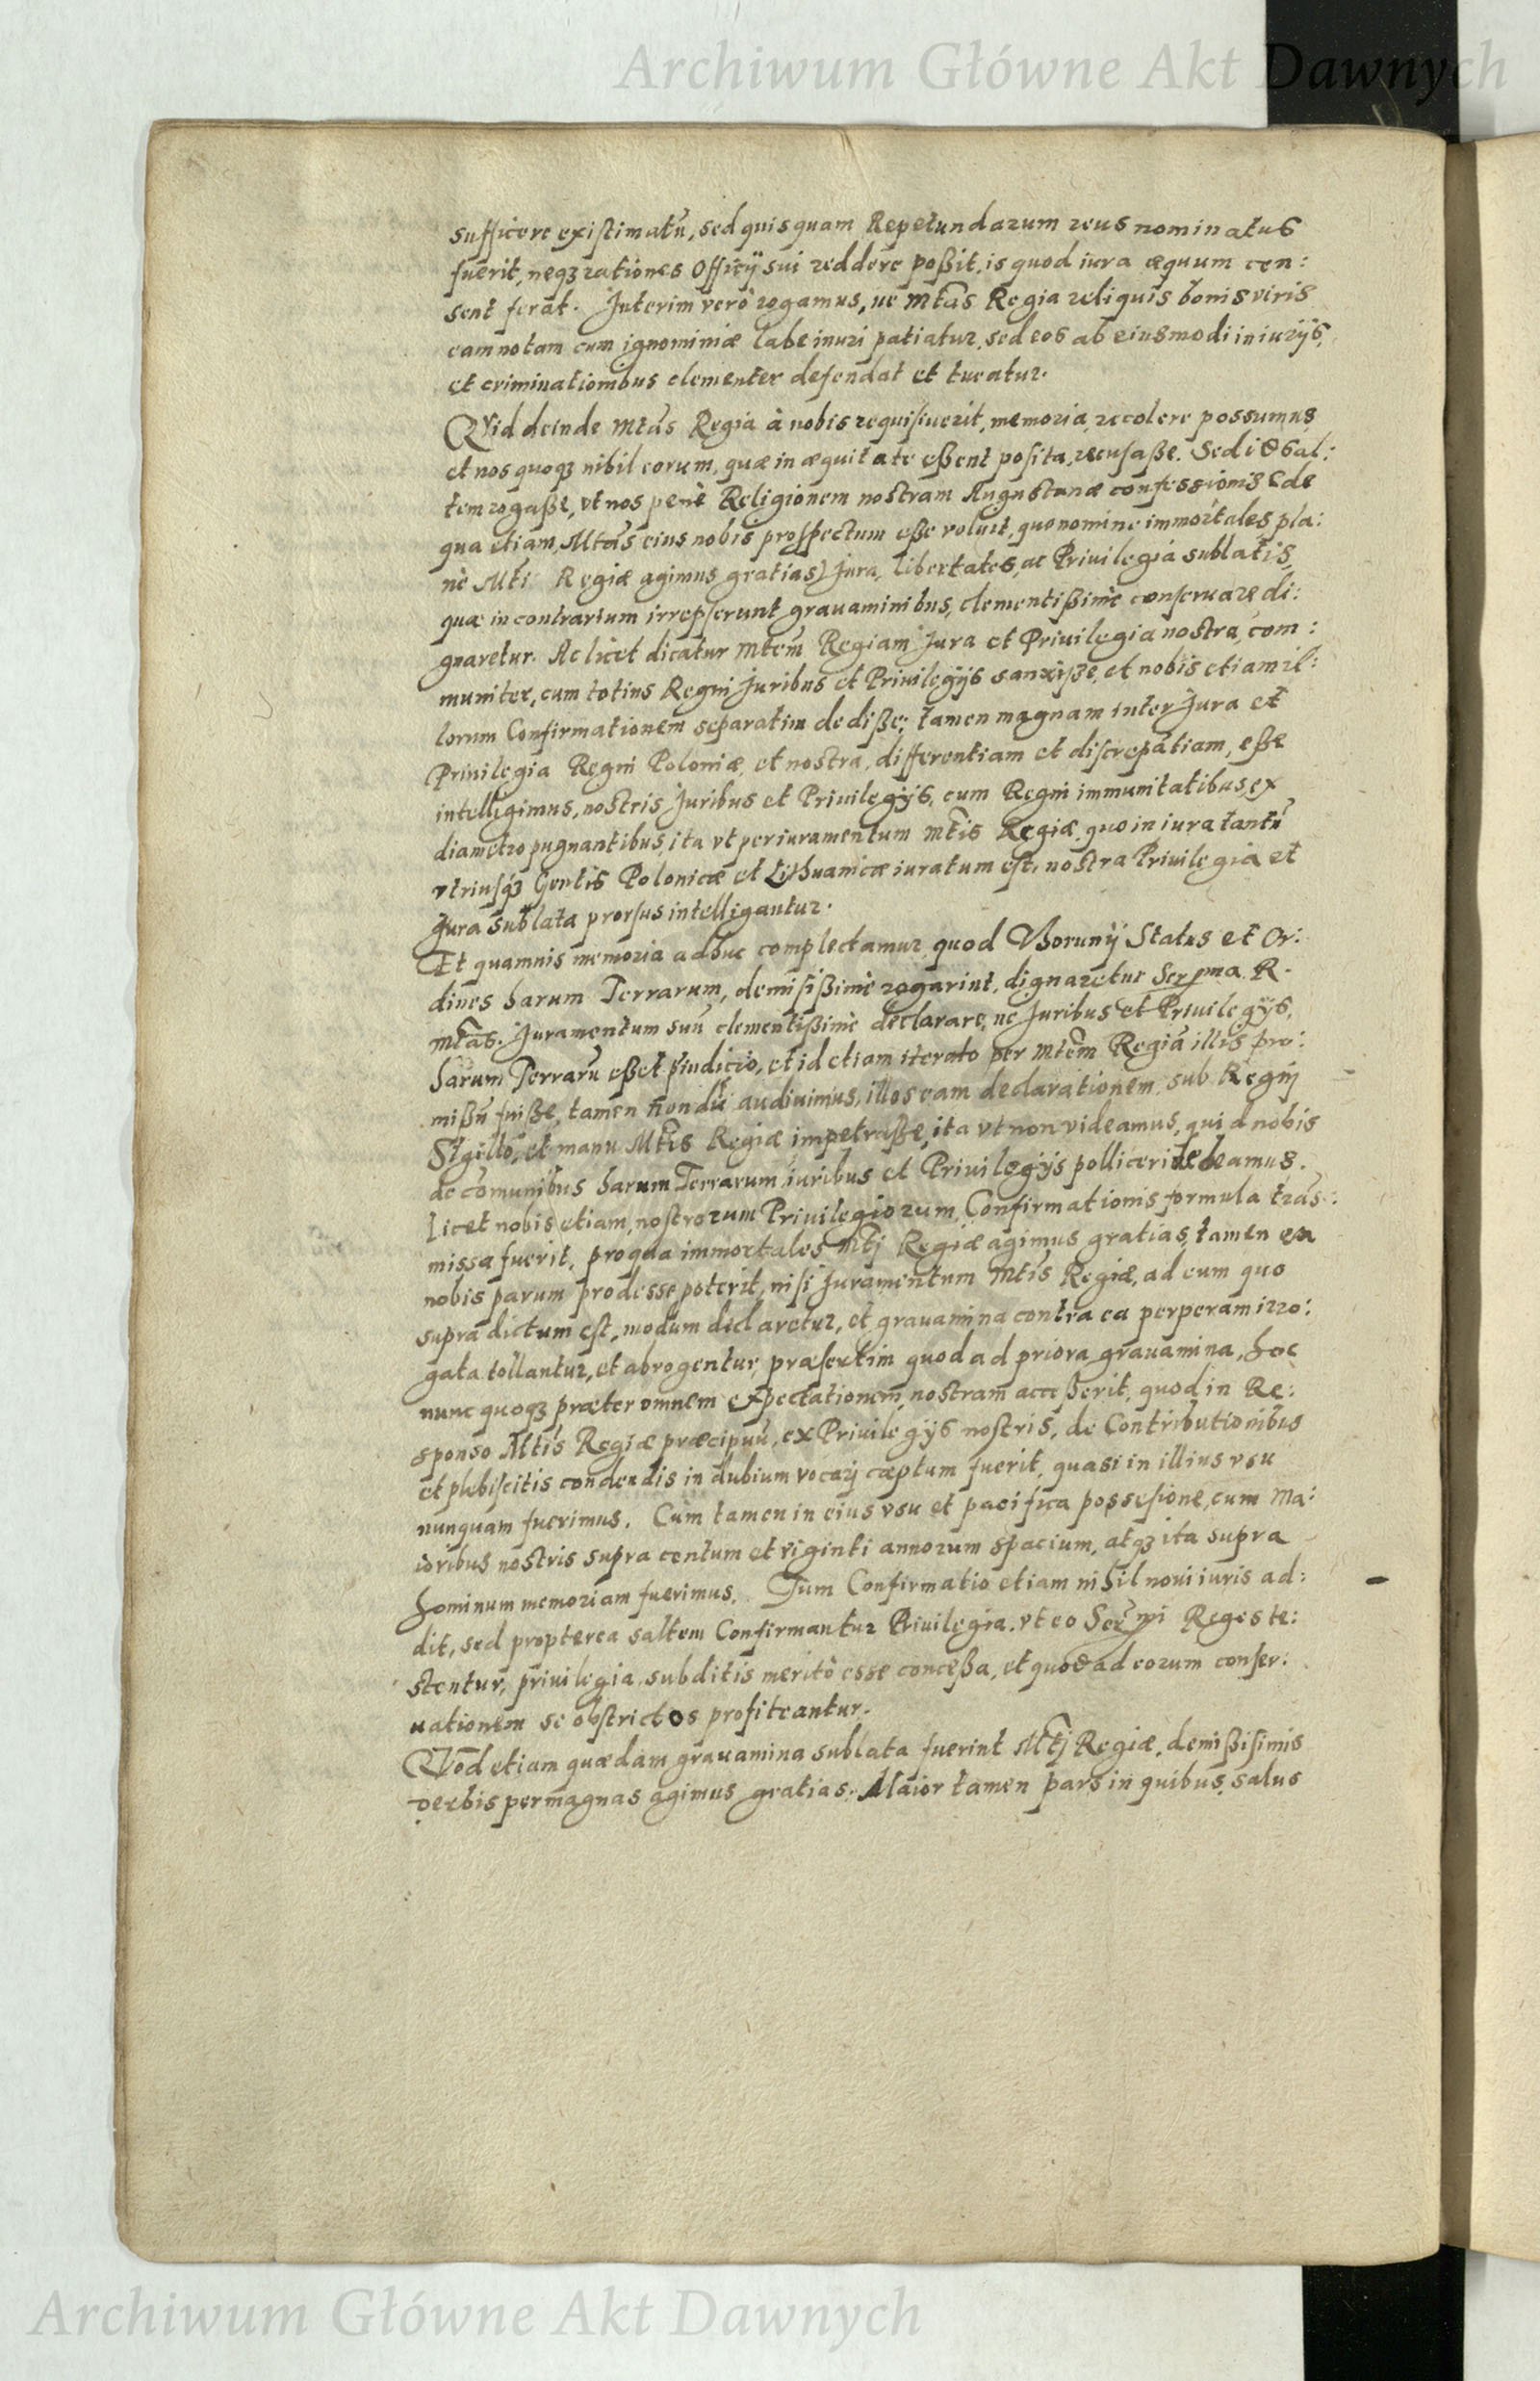 Archiwum Główne Akt Dawnych
sufficere existimatū, sed quisquam Repetundarum reus nominatus
fuerit, neqꝫ rationes Officÿ sui reddere poßit, is quod iura æquum cen:
sent ferat. Interim verò rogamus, ne Mtãs Regia reliquis bonis viris
eam notam cum ignominiæ labe inuri patiatur, sed eos ab eiusmodi iniurÿs,
et criminationibus clementer defendat et tueatur.
QVid deinde Mtãs Regia à nobis requisiuerit, memoria recolere possumus,
et nos quoqꝫ nihil eorum, quæ in æquitate eßent posita, recusaße. Sed id sal:
tem rogaße, vt nos penè Religionem nostram Augustanæ confessionis (de
qua etiam Mtãs eius nobis prospectum eße voluit, quo nomine immortales pla:
nè Mti Regiæ agimus gratias) Jura, libertates, ac Priuilegia sublatis,
quæ in contrarium irrepserunt grauaminibus, clementißimè conseruare di:
gnaretur. Ac licet dicatur Mtem̃ Regiam Jura et Priuilegia nostra com:
muniter, cum totius Regni Juribus et Priuilegÿs sanxiße, et nobis etiam il:
lorum Confirmationem separatim dediße; tamen magnam inter Jura et
Priuilegia Regni Poloniæ, et nostra, differentiam et discrepãtiam, eße
intelligimus, nostris Juribus et Priuilegÿs, cum Regni immunitatibus, ex
diametro pugnantibus, ita vt per iuramentum Mtĩs Regiæ, quo in iura tantū
vtriusqꝫ Gentis Polonicæ et Lithuanicæ iuratum est, nostra Priuilegia et
Jura sublata prorsus intelligantur.
Et quamuis memoria adhuc complectamur, quod Borunÿ Status et Or:
dines harum Terrarum, demisißimè rogarint, dignaretur Serma. R.
Mtãs. Juramentum suū clementißimè declarare, ne Juribus et Priuilegÿs,
harum Terrarū eßet p̃iudicio, et id etiam iterato per Mtem̃ Regiā illis pro:
mißū fuiße, tamen nondū audiuimus, illos eam declarationem sub Regnj
Sigillo, et manu Mtĩs Regiæ impetraße, ita vt non videamus, quid nobis
de com̃unibus harum Terrarum iuribus et Priuilegÿs polliceri debeamus.
Licet nobis etiam, nostrorum Priuilegiorum, Confirmationis formula trãs:
missa fuerit, pro qua immortales Mtj Regiæ agimus gratias, tamen ea
nobis parum prodesse poterit, nisi Juramentum Mtĩs Regiæ, ad eum quo
supra dictum est, modum declaretur, et grauamina contra ea perperam irro:
gata tollantur, et abrogentur, præsertim quod ad priora grauamina, hoc
nunc quoqꝫ præter omnem expectationem, nostram acceßerit, quod in Re:
sponso Mtĩs Regiæ præcipuū, ex Priuilegÿs nostris, de Contributionibus
et plebiscitis condendis in dubium vocarj cæptum fuerit, quasi in illius vsu
nunquam fuerimus. Cùm tamen in eius vsu et pacifica possesione, cum Ma:
ioribus nostris supra centum et viginti annorum spacium, atqꝫ ita supra
hominum memoriam fuerimus. Tum Confirmatio etiam nihil noui iuris ad:
dit, sed propterea saltem Confirmantur Priuilegia, vt eo Sermi Reges te:
stentur, priuilegia subditis meritò esse conceßa, et quod ad eorum conser:
uationem se obstrictos profiteantur.
QVod etiam quædam grauamina sublata fuerint Mtj Regiæ, demißisimis
verbis permagnas agimus gratias. Maior tamen pars in quibus salus
Archiwum Główne Akt Dawnych